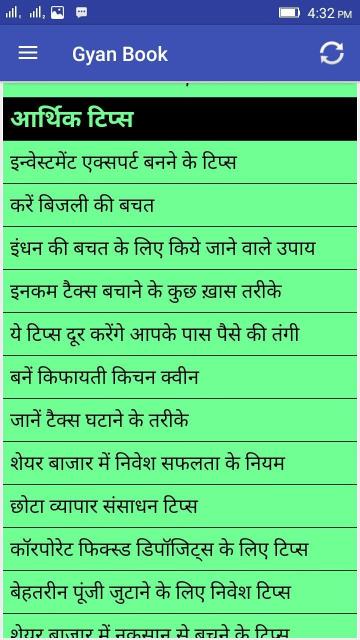 4:32 PM
Gyan Book
आर्थिक टिप्स
इन्वेस्टमेंट एक्सपर्ट बनने के टिप्स
करें बिजली की बचत
इंधन की बचत के लिए किये जाने वाले उपाय
इनकम टैक्स बचाने के कुछ ख़ास तरीके
ये टिप्स दूर करेंगे आपके पास पैसे की तंगी
बनें किफायती किचन क्वीन
जानें टैक्स घटाने के तरीके
शेयर बाजार में निवेश सफलता के नियम
छोटा व्यापार संसाधन टिप्स
कॉरपोरेट फिक्स्ड डिपॉजिट्स के लिए टिप्स
बेहतरीन पूंजी जुटाने के लिए निवेश टिप्स
शेयर बाजार में नुकसान से बचने के टिप्स